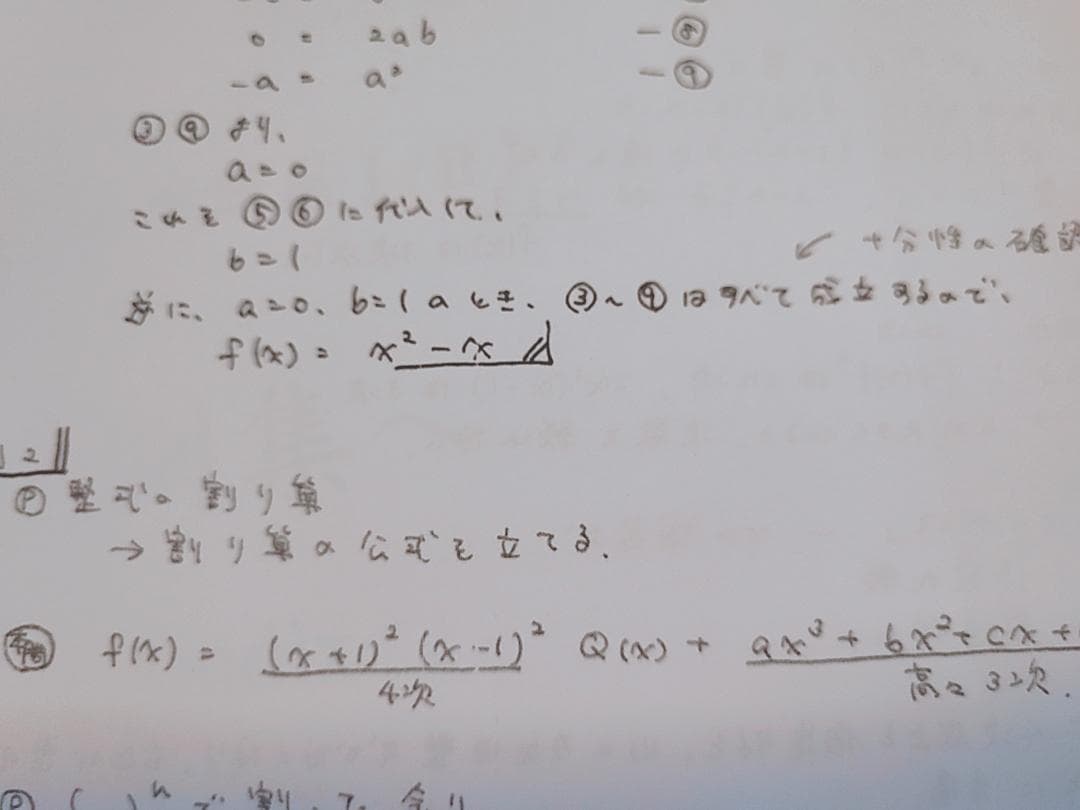 0 = 2ab －⑧
－a = a² －⑨
③⑨より、
a = 0
これを⑤⑥に代入して、
b = 1
↙ 十分性の確認
逆に、a=0、b=1のとき、③～⑨はすべて成立するので、
f(x) = x² － x
12
Ⓟ 整式の割り算
→ 割り算の公式を立てる.
本問 f(x) = (x+1)² (x-1)² Q(x) + ax³ + bx² + cx +
4次 高々3次.
Ⓟ ( )ⁿで割って余り